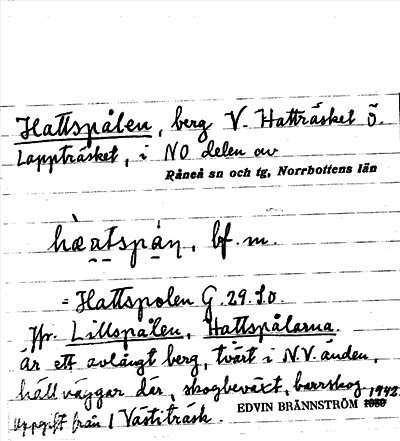 Hattspålen, berg V. Hatträsket Ö.
Lappträsket, i NO delen av
Råneå sn och tg, Norrbottens län
hàatspån, bf. m.
= Hattspolen G. 29. S.O.
Jfr. Lillspålen, Hattspålarna.
Är ett avlångt berg, tvärt i N.V. änden,
hällväggar där, skogbeväxt, barrskog.
Uppgift från 1 Västiträsk. EDVIN BRÄNNSTRÖM 1942.